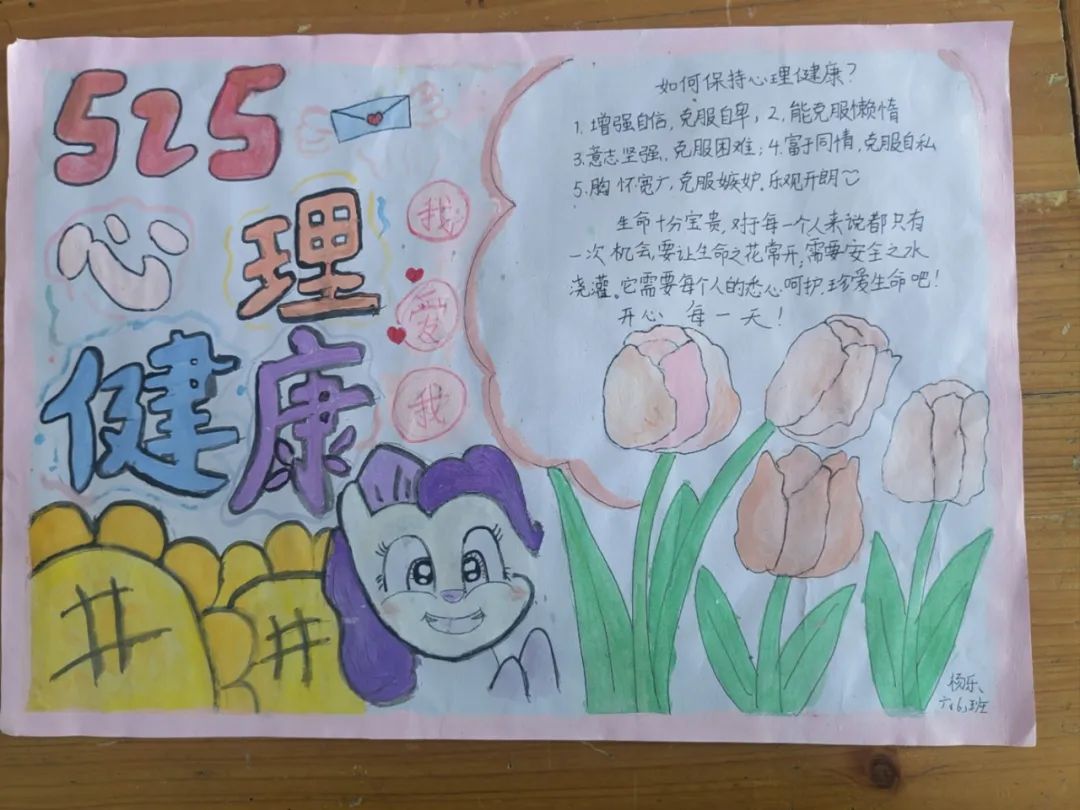 525
心理
健康
我
爱
我
如何保持心理健康？
1.增强自信,克服自卑，2.能克服懒惰
3.意志坚强，克服困难；4.富于同情,克服自私
5.胸怀宽广,克服嫉妒.乐观开朗
生命十分宝贵,对于每一个人来说都只有
一次机会,要让生命之花常开;需要安全之水
浇灌。它需要每个人的悉心呵护.珍爱生命吧！
开心 每一天！
井
井
杨乐、
六(6)班